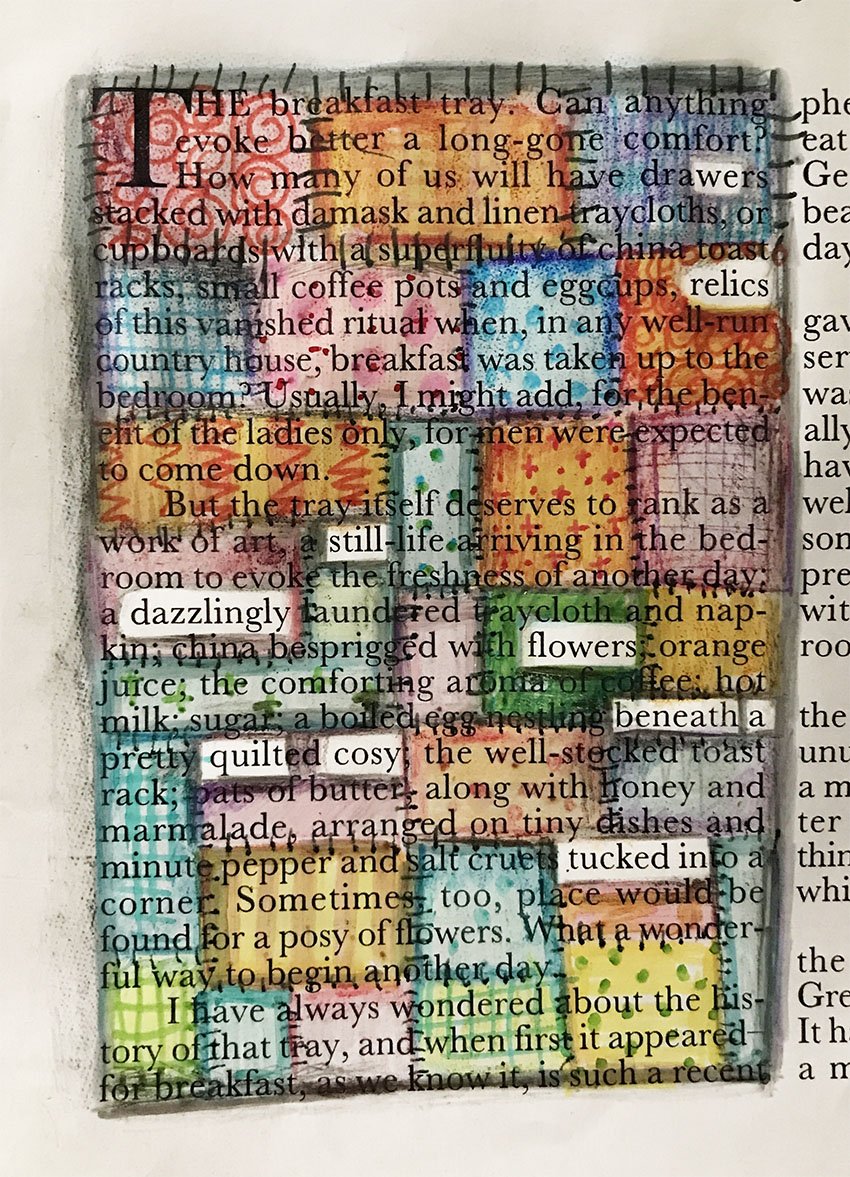 THE breakfast tray. Can anything phe
evoke better a long-gone comfort? eat
How many of us will have drawers Ge
stacked with damask and linen traycloths, or bea
cupboards with a superfluity of china toast day
racks, small coffee pots and eggcups, relics
of this vanished ritual when, in any well-run gav
country house, breakfast was taken up to the ser
bedroom? Usually, I might add, for the ben- was
efit of the ladies only, for men were expected ally
to come down. hav
But the tray itself deserves to rank as a wel
work of art, a still-life arriving in the bed- son
room to evoke the freshness of another day: pre
a dazzlingly laundered traycloth and nap- wit
kin; china besprigged with flowers; orange roo
juice; the comforting aroma of coffee; hot
milk; sugar; a boiled egg nestling beneath a the
pretty quilted cosy; the well-stocked toast unu
rack; pats of butter, along with honey and a m
marmalade, arranged on tiny dishes and, ter
minute pepper and salt cruets tucked into a thin
corner. Sometimes, too, place would be whi
found for a posy of flowers. What a wonder-
ful way to begin another day. the
I have always wondered about the his- Gre
tory of that tray, and when first it appeared It h
for breakfast, as we know it, is such a recent a m